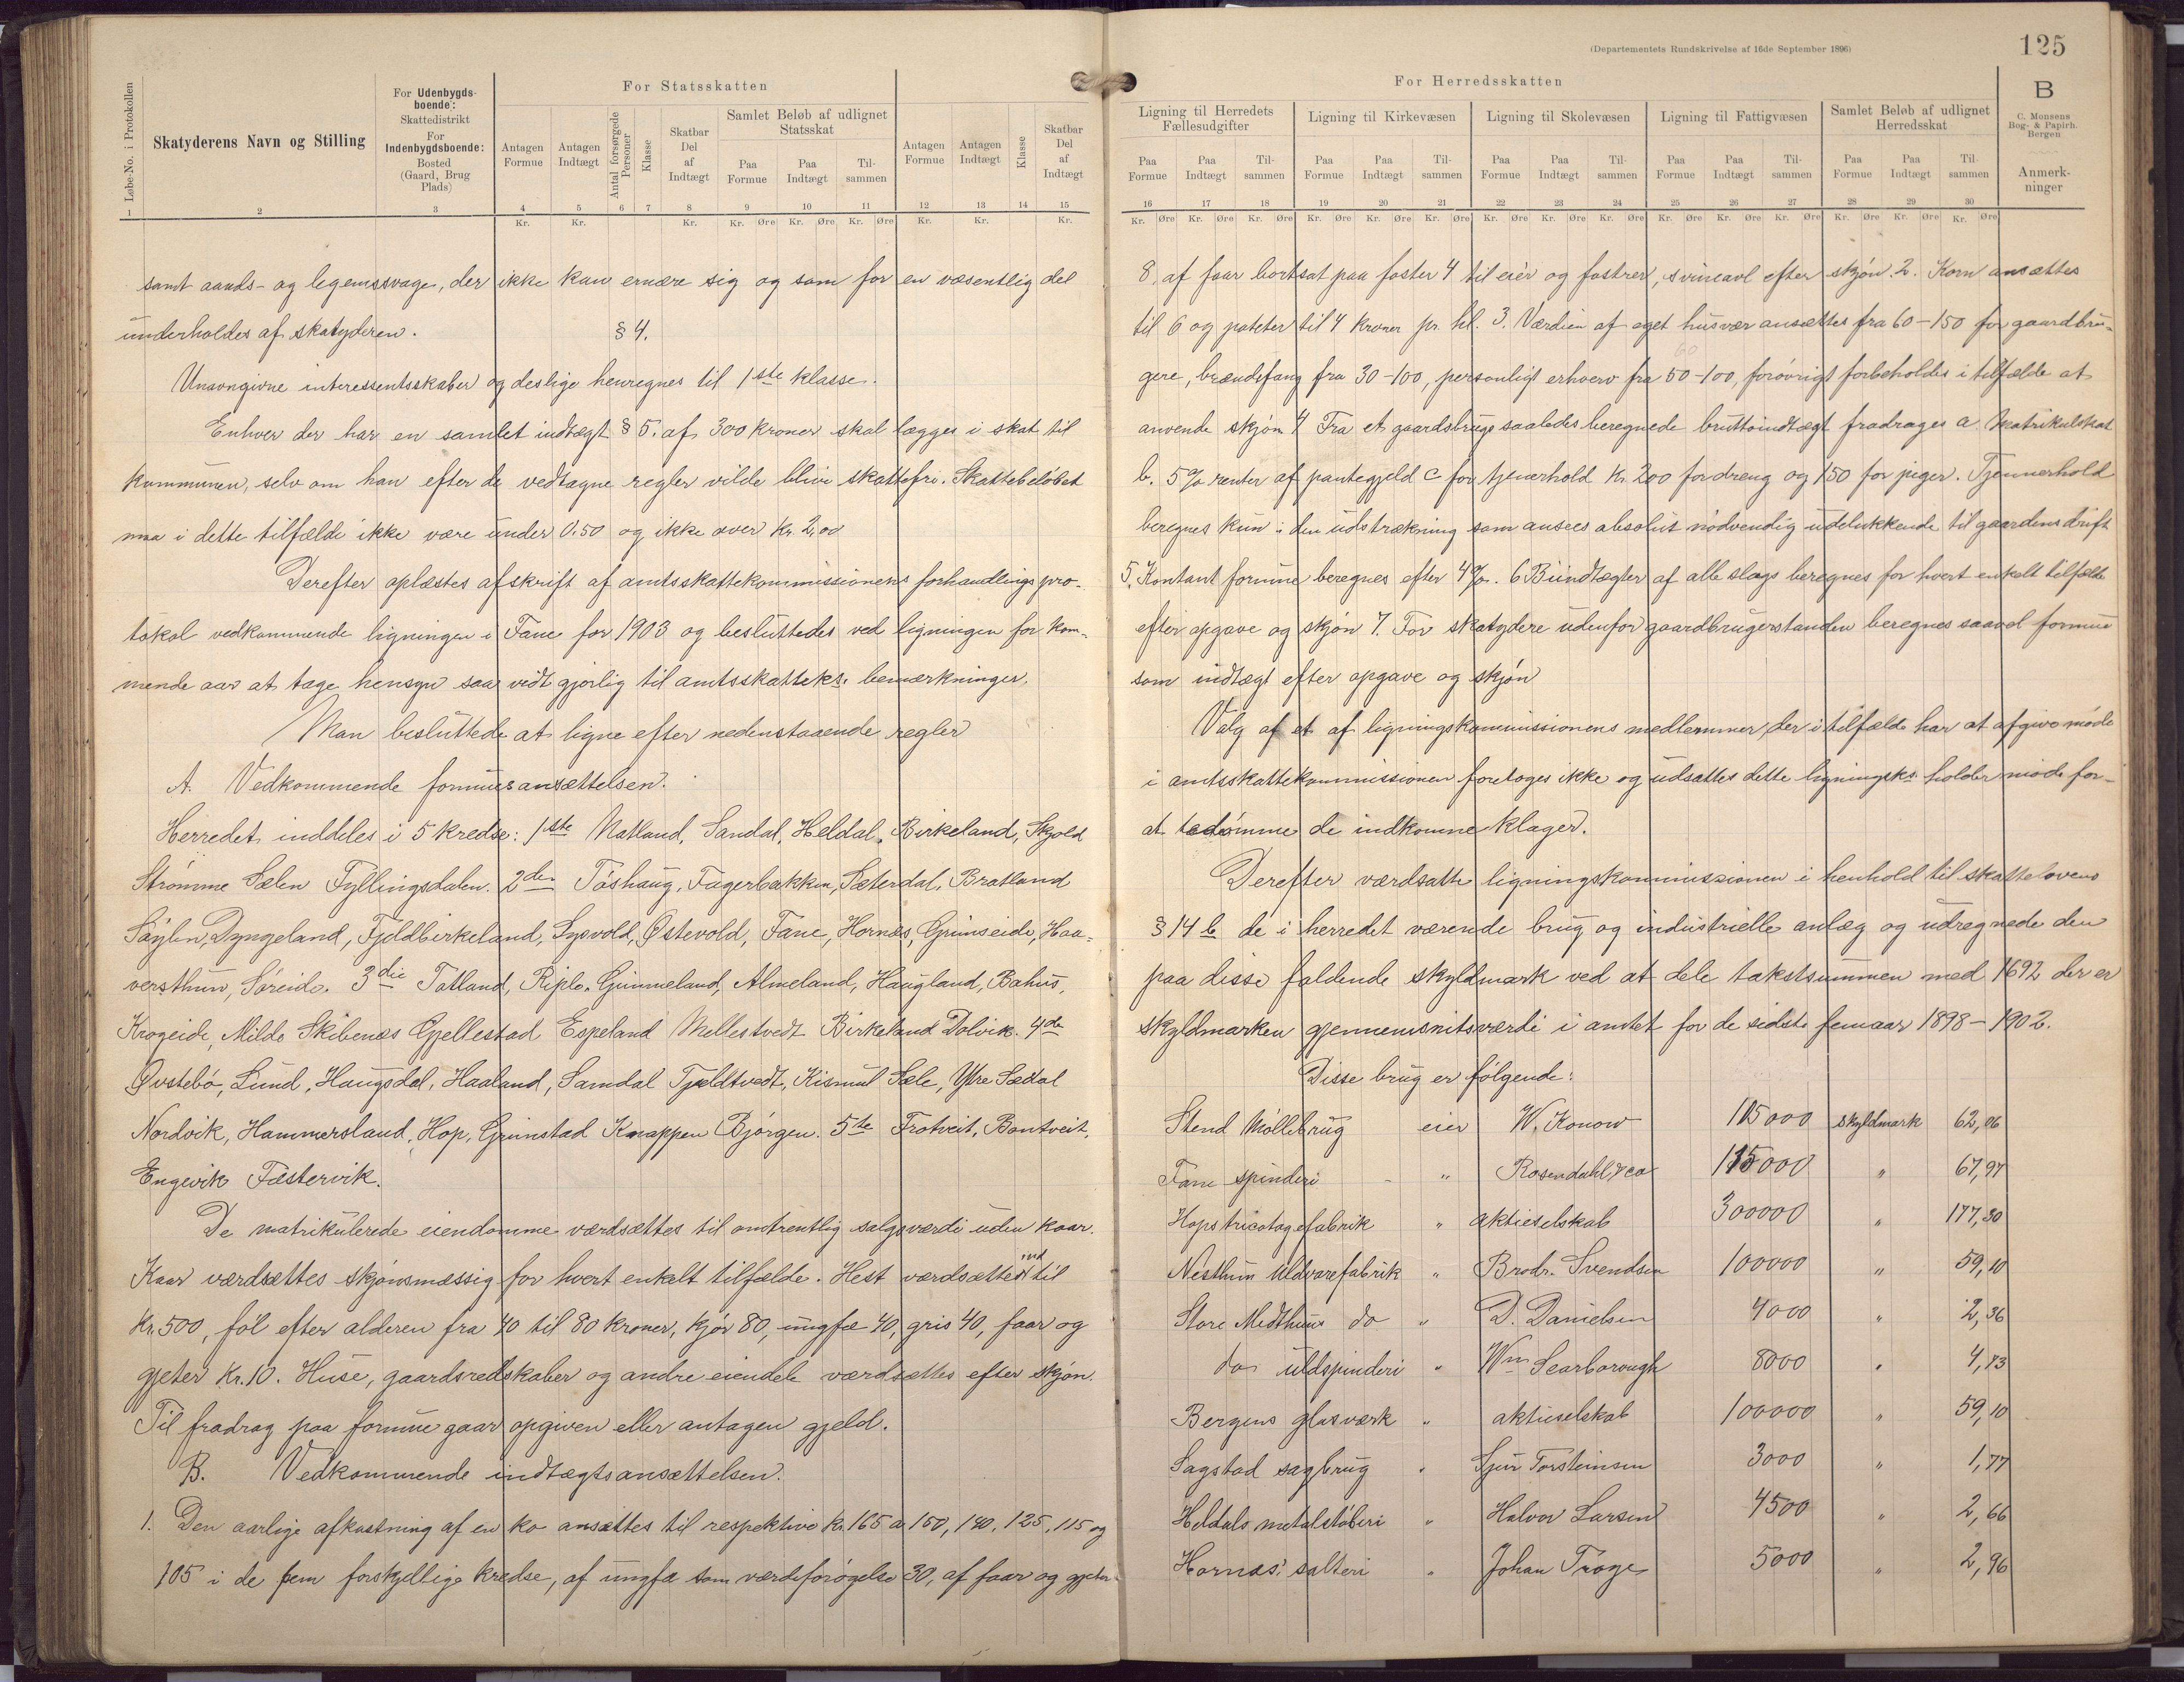 (Departementets Rundskrivelse af 16de September 1896)
125
Løbe-No. i Protokollen
Skatyderens Navn og Stilling
For Udenbygds-
boende:
Skattedistrikt
For
Indenbygdsboende:
Bosted
(Gaard, Brug
Plads)
For Statsskatten
Antagen
Formue
Antagen
Indtægt
Antal forsørgede
Personer
Klasse
Skatbar
Del
af
Indtægt
Samlet Beløb af udlignet
Statsskat
Paa
Formue
Paa
Indtægt
Til-
sammen
Antagen
Formue
Antagen
Indtægt
Klasse
Skatbar
Del
af
Indtægt
1 2 3 4 5 6 7 8 9 10 11 12 13 14 15
Kr. Kr. Kr. Kr. Øre Kr. Øre Kr. Øre Kr. Kr. Kr.
samt aands- og legemssvage, der ikke kan ernære sig og som for en væsentlig del
underholdes af skatyderen.
§ 4.
Unavngivne interessentskaber og deslige henregnes til 1ste klasse.
Enhver der har en samlet indtægt § 5. af 300 kroner skal lægges i skat til
kommunen, selv om han efter de vedtagne regler vilde blive skattefri. Skattebeløbet
maa i dette tilfælde ikke være under 0.50 og ikke over Kr. 2,00
Derefter oplæstes afskrift af amtsskattekommissionens forhandlingspro-
tokol vedkommende ligningen i Fane for 1903 og besluttedes ved ligningen for kom-
mende aar at tage hensyn saa vidt gjørlig til amtsskatteks. bemærkninger.
Man besluttede at ligne efter nedenstaaende regler
A. Vedkommende formuesansættelsen.
Herredet inddeles i 5 kredse: 1ste Natland, Sandal, Heldal, Birkeland, Skjold
Strømme Sælen Fyllingsdalen. 2den Tøshaug, Fagerbakken, Sæterdal, Bratland
Søylen, Dyngeland, Fjeldbirkeland, Lysvold, Østevold, Fane, Hornæs, Grimseide, Haa-
versthun, Søreide. 3die Tatland, Riple, Grimmeland, Almeland, Haugland, Bahus,
Krogeide, Milde Skibenæs Gjellestad Espeland Mellestvedt Birkeland Dolvik. 4de
Øvstebø, Lund, Haugsdal, Haaland, Samdal Tjældtvedt, Kismul Sæle, Ytre Sædal
Nordvik, Hammersland, Hop, Grimstad Knappen Bjørgen. 5te Frotveit, Bontveit,
Engevik Fæstervik.
De matrikulerede eiendomme værdsættes til omtrentlig salgsværdi uden kaar.
Kaar værdsættes skjønsmæssig for hvert enkelt tilfælde. Hest værdsættes indtil
Kr. 500, føl efter alderen fra 40 til 80 kroner, kjør 80, ungfæ 40, gris 40, faar og
gjeter Kr. 10. Huse, gaardsredskaber og andre eiendele værdsættes efter skjøn.
Til fradrag paa formue gaar opgiven eller antagen gjeld.
B. Vedkommende indtægtsansættelsen.
1. Den aarlige afkastning af en ko ansættes til respektive Kr. 165 a 150, 140, 125, 115 og
105 i de fem forskjellige kredse, af ungfæ som værdeforøgelse 30, af faar og gjeter
For Herredsskatten
B
Ligning til Herredets
Fællesudgifter
Ligning til Kirkevæsen
Ligning til Skolevæsen
Ligning til Fattigvæsen
Samlet Beløb af udlignet
Herredsskat
C. Monsens
Bog- & Papirh.
Bergen
Paa
Formue
Paa
Indtægt
Til-
sammen
Paa
Formue
Paa
Indtægt
Til-
sammen
Paa
Formue
Paa
Indtægt
Til-
sammen
Paa
Formue
Paa
Indtægt
Til-
sammen
Paa
Formue
Paa
Indtægt
Til-
sammen
Anmerk-
ninger
16 17 18 19 20 21 22 23 24 25 26 27 28 29 30
Kr. Øre Kr. Øre Kr. Øre Kr. Øre Kr. Øre Kr. Øre Kr. Øre Kr. Øre Kr. Øre Kr. Øre Kr. Øre Kr. Øre Kr. Øre Kr. Øre Kr. Øre
8, af faar bortsat paa foster 4 til eier og fostrer, svineavl efter skjøn. 2. Korn ansættes
til 6 og poteter til 4 kroner pr. hl. 3. Værdien af eget husvær ansættes fra 60–150 for gaardbru-
60
gere, brændefang fra 30–100, personligt erhverv fra 50–100, forøvrigt forbeholdes i tilfælde at
anvende skjøn 4 Fra et gaardsbrugs saaledes beregnede bruttoindtægt fradrages a. Matrikulskat
b. 5% renter af pantegjeld c for tjenerhold Kr. 200 for dreng og 150 for piger. Tjennerhold
beregnes kun i den udstrækning som ansees absolut nødvendig udelukkende til gaardens drift
5. Kontant formue beregnes efter 4%. 6 Biindtægter af alle slags beregnes for hvert enkelt tilfælde
efter opgave og skjøn 7. For skatydere udenfor gaardbrugerstanden beregnes saavel formue
som indtægt efter opgave og skjøn
Valg af et af ligningskommissionens medlemmer, der i tilfælde har at afgive møde
i amtsskattekommissionen foretoges ikke og udsattes dette ligningsks. holder møde for
at bedømme de indkomne klager.
Derefter værdsatte ligningskommissionen i henhold til skattelovens
§ 14 b de i herredet værende brug og industrielle anlæg og udregnede den
paa disse faldende skyldmark ved at dele takstsummen med 1692 der er
skyldmarken gjennemsnitsværdi i amtet for de sidste femaar 1898–1902.
Disse brug er følgende:
Stend Møllebrug eier W. Konow 105000 skyldmark 62,06
Fane spinderi - " Rosendahl & co 115000 " 67,97
Hops tricotagefabrik " aktieselskab 300000 " 177,30
Nesthun uldvarefabrik " Brødr. Svendsen 100000 " 59,10
Store Midthun do " D. Danielsen 4000 " 2,36
do uldspinderi " Wm Searborough 8000 " 4,73
Bergens glasværk " aktieselskab 100000 " 59,10
Sagstad sagbrug " Sjur Torsteinsen 3000 " 1,77
Heldals metalstøberi " Halvor Larsen 4500 " 2,66
Hornæs' salteri " Johan Troge 5000 " 2,96